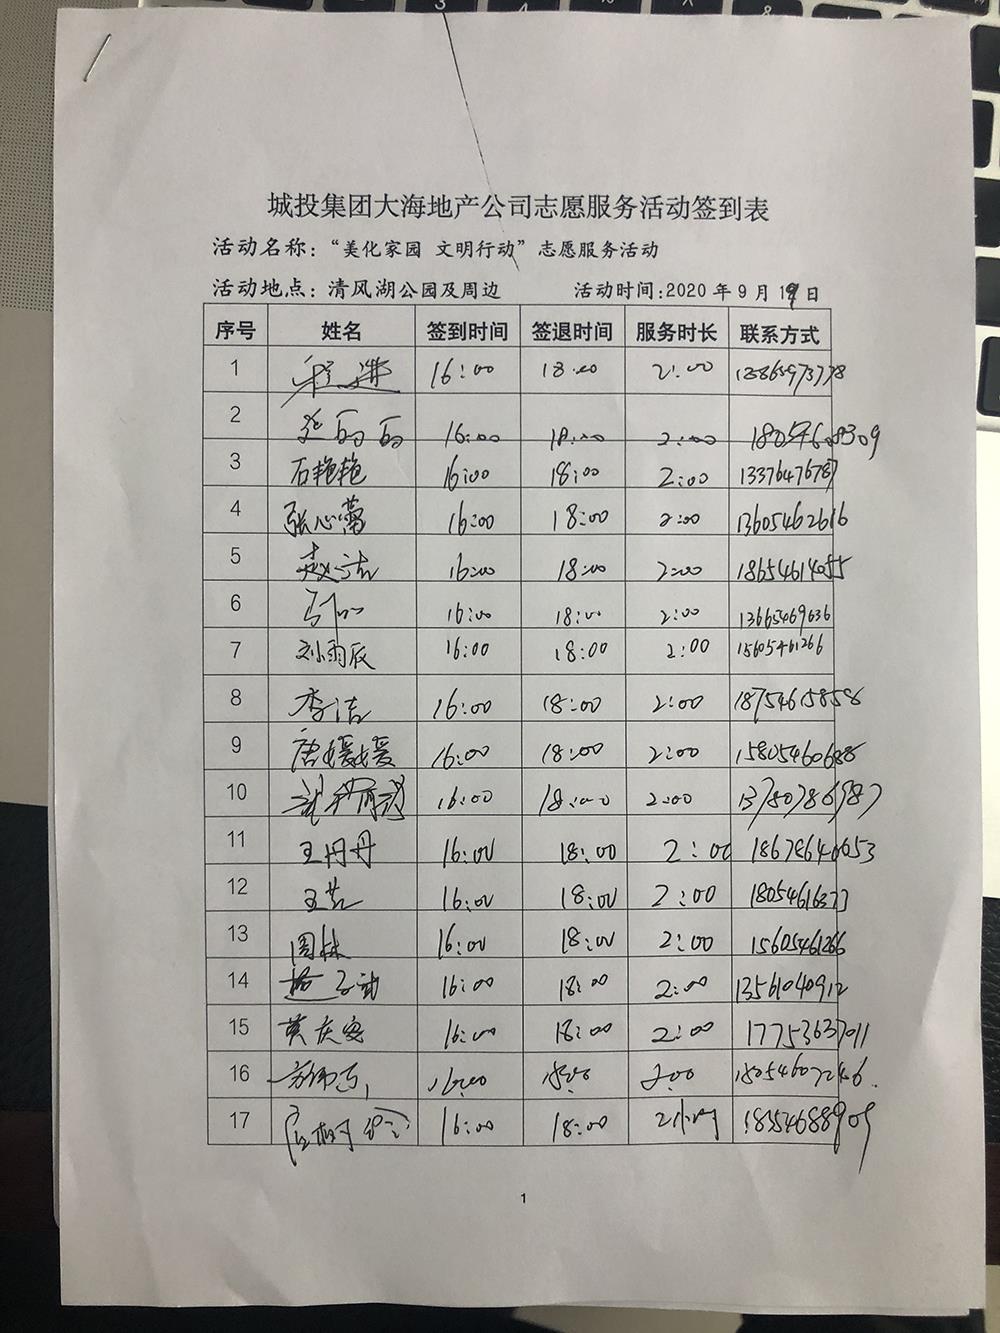 城投集团大海地产公司志愿服务活动签到表
活动名称：“美化家园 文明行动”志愿服务活动
活动地点：清风湖公园及周边 活动时间：2020 年 9 月 19 日
序号 姓名 签到时间 签退时间 服务时长 联系方式
1 16:00 18:00 2:00
2 16:00 18:00 2:00
3 石艳艳 16:00 18:00 2:00 13376476787
4 张心蕾 16:00 18:00 2:00 13605462616
5 赵洁 16:00 18:00 2:00 18654614055
6 16:00 18:00 2:00 13665469636
7 刘雨辰 16:00 18:00 2:00 15605461266
8 李洁 16:00 18:00 2:00 18754615858
9 唐媛媛 16:00 18:00 2:00 15805460688
10 16:00 18:00 2:00 13780786987
11 王丹丹 16:00 18:00 2:00 18678640053
12 16:00 18:00 2:00
13 周林 16:00 18:00 2:00 15605461266
14 16:00 18:00 2:00 13561040912
15 黄庆安 16:00 18:00 2:00 17753637011
16 16:00 18:00 2:00 15054607246
17 16:00 18:00 2小时 18354688909
1